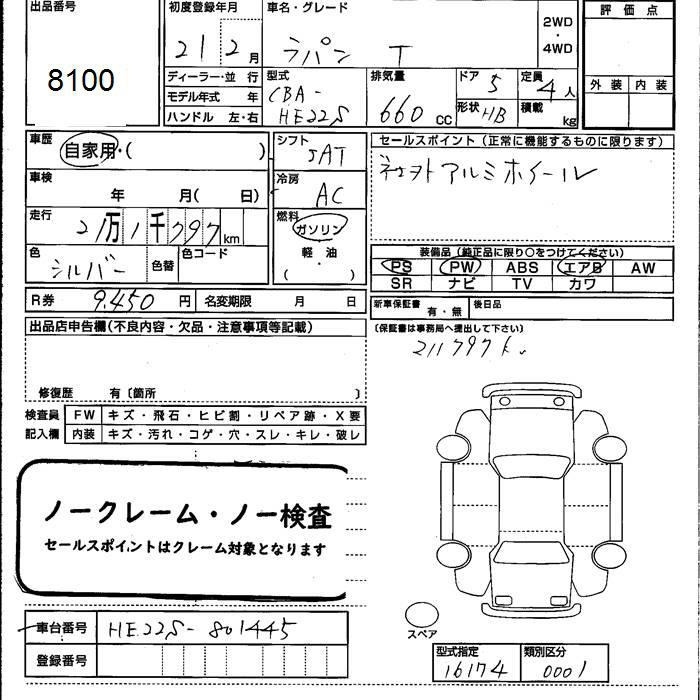 出品番号
8100
初度登録年月
21 2月
車名・グレード
ラパン T
2WD
・
4WD
評価点
外装 内装
ディーラー・並行
モデル年式 年
ハンドル 左・右
型式
CBA-
HE22S
排気量
660 cc
ドア 5
形状 HB
定員 4人
積載 kg
車歴
自家用・( )
車検
年 月( 日)
走行
21万1千797km
色
シルバー
色替
色コード
シフト
5AT
冷房
AC
燃料
ガソリン
軽・油
( )
セールスポイント(正常に機能するものに限ります)
社外アルミホイール
装備品(純正品に限り○をつけてください)
PS PW ABS エアB AW
SR ナビ TV カワ
R券 9,450円 名変期限 月 日
新車保証書 有・無 後日品
(保証書は事務局へ提出して下さい)
211797k
出品店申告欄(不良内容・欠品・注意事項等記載)
修復歴 有〔箇所 〕
検査員 FW キズ・飛石・ヒビ割・リペア跡・X要
記入欄 内装 キズ・汚れ・コゲ・穴・スレ・キレ・破レ
ノークレーム・ノー検査
セールスポイントはクレーム対象となります
スペア
車台番号 HE22S-801445
登録番号
型式指定 類別区分
16174 0001